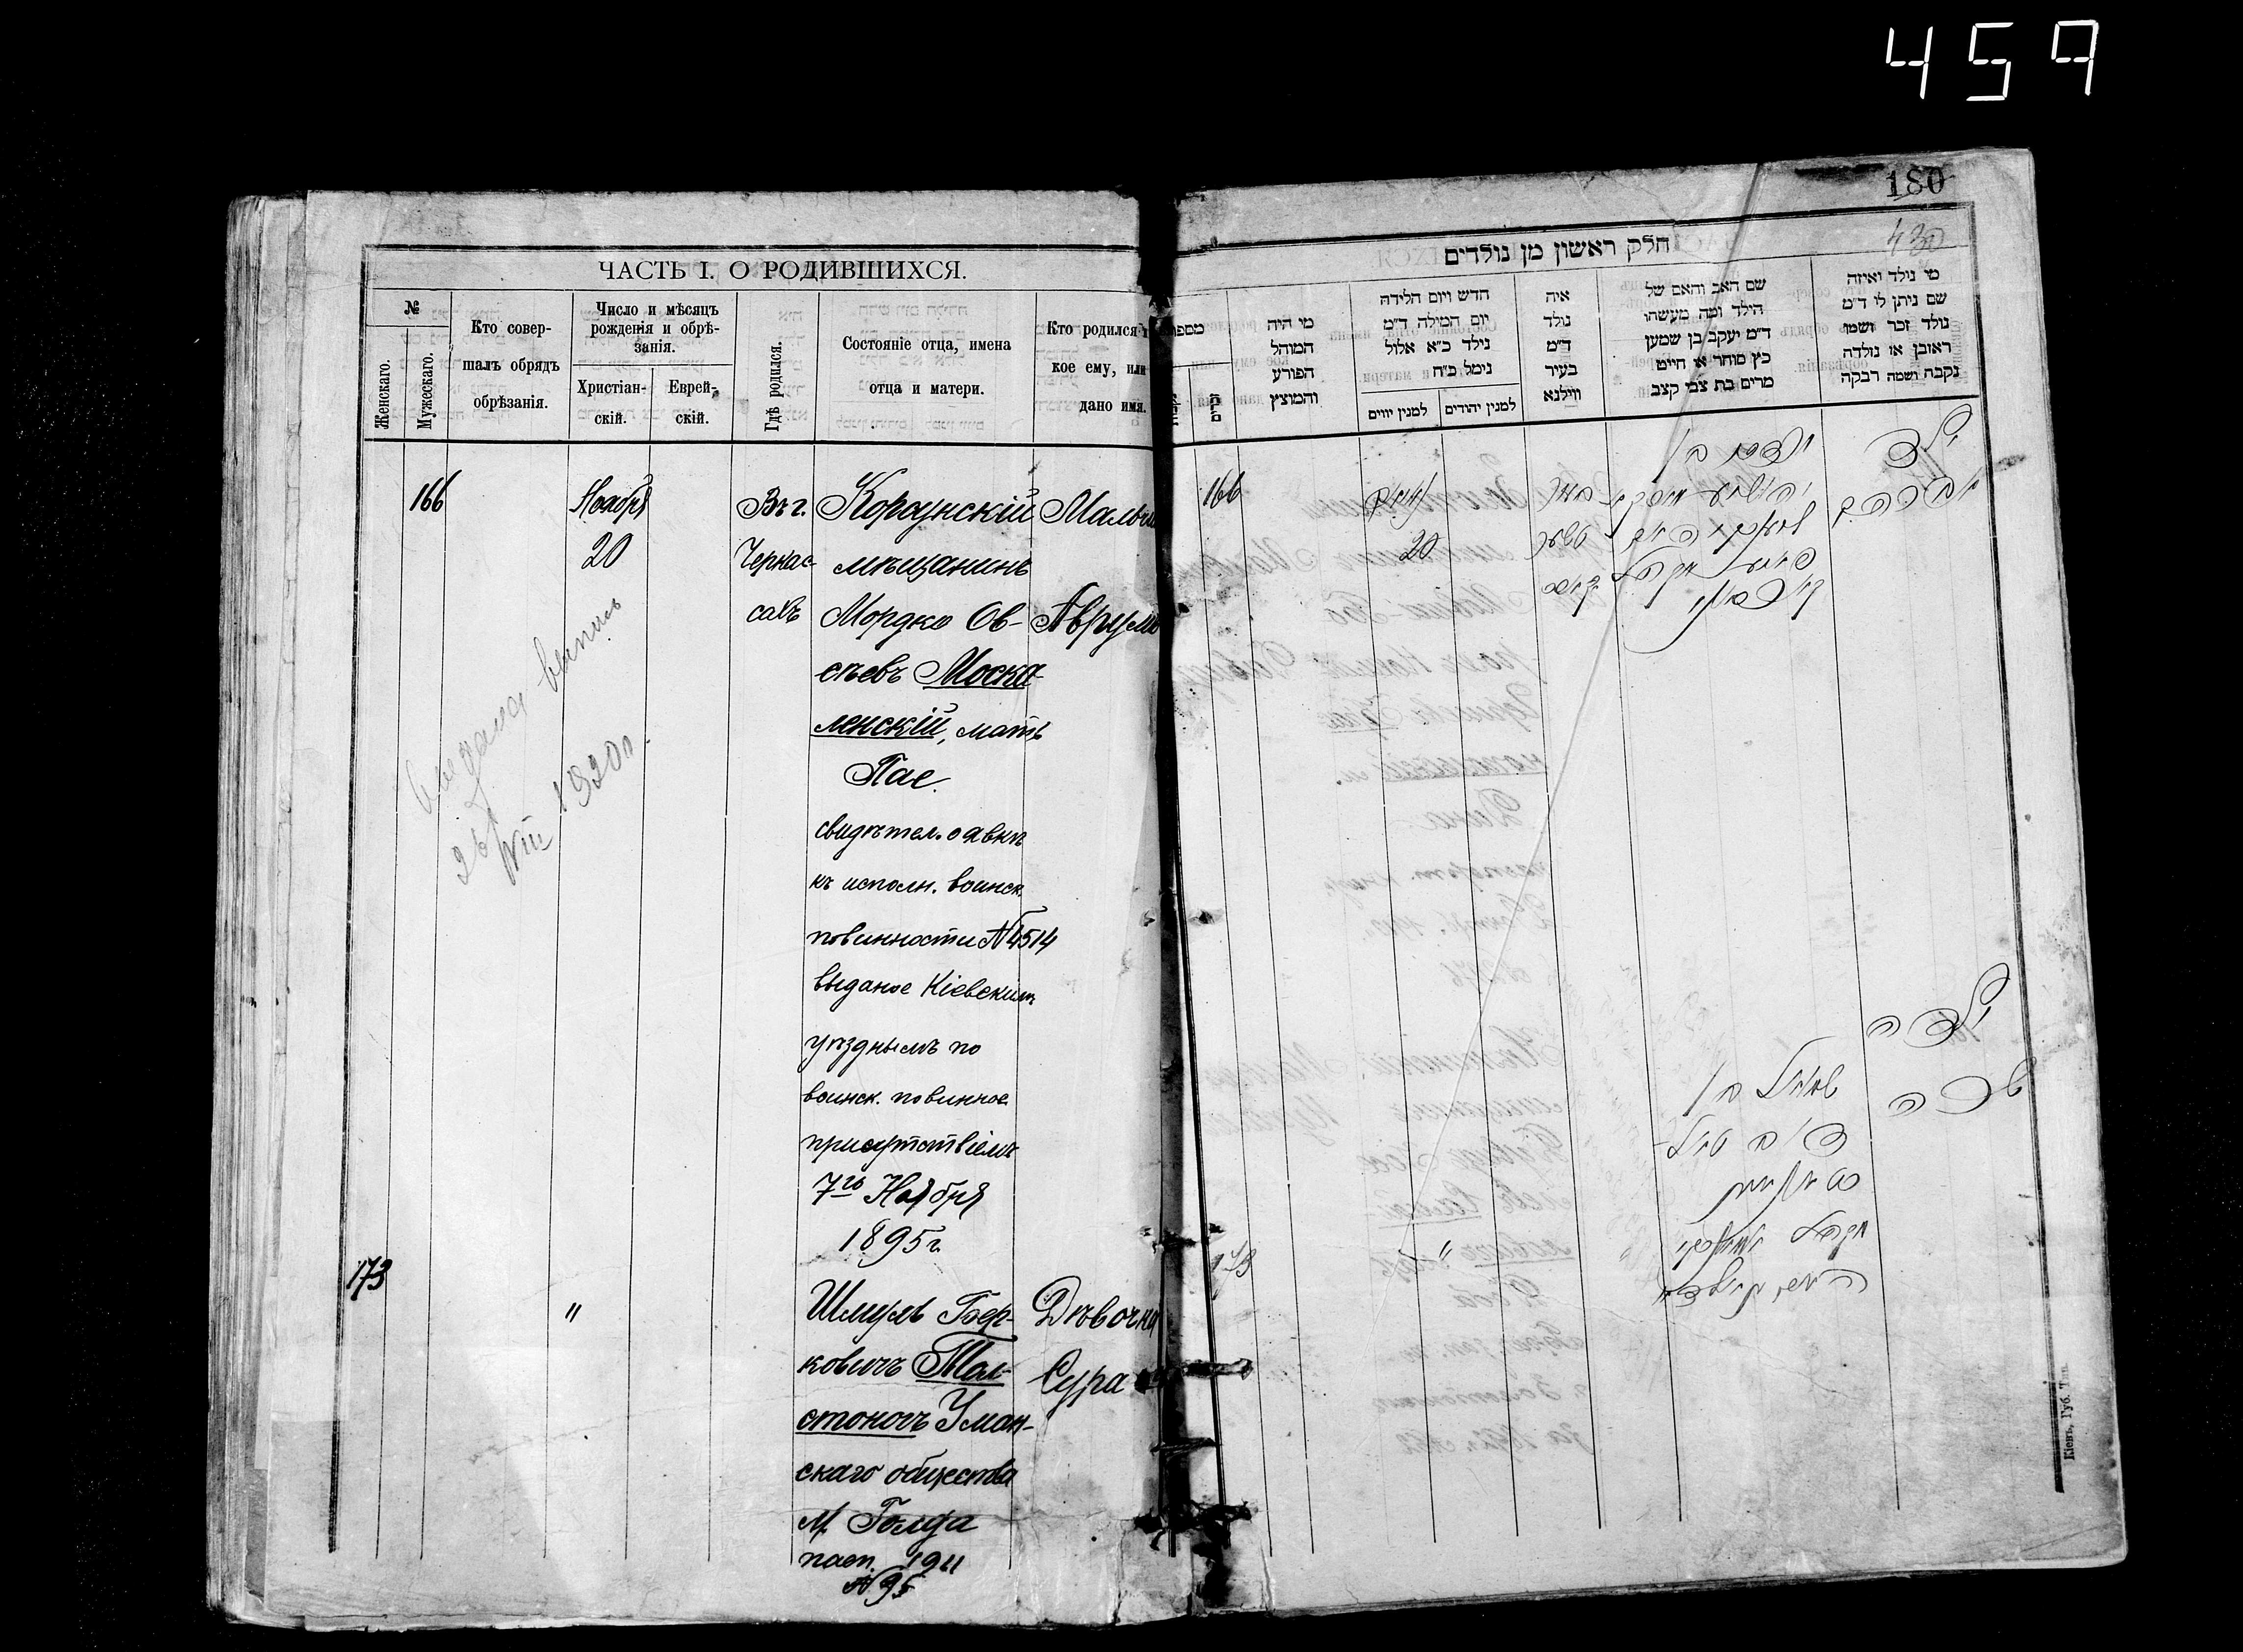 459
180
430
ЧАСТЬ I. О РОДИВШИХСЯ.
№
Женскаго.
Мужескаго.
Кто совер-
шалъ обрядъ
обрѣзанія.
Число и мѣсяцъ
рожденія и обрѣ-
занія.
Христіан-
скій.
Еврей-
скій.
Гдѣ родился.
Состояніе отца, имена
отца и матери.
Кто родился и
кое ему, или
дано имя.
166
Ноября
20
Въ г.
Черкас-
сахъ
Корсунскій
мѣщанинъ
Мордко Ов-
сѣевъ Моска-
ленскій, мать
Пае.
свидѣтел. о явкѣ
къ исполн. воинск.
повинности №4514
выданое Кіевскимъ
уѣзднымъ по
воинск. повиннос
присутствіемъ
7го Ноября
1895 г.
Мальчи
Аврумъ
выдана выпись
26/VIII 1920 г.
173
"
Шмуль Бер-
ковичъ Тол-
стоногъ Уман-
скаго общества
М Голда
пасп. 1911
№95
Дѣвочка
Сура
חלק ראשון מן נולדים
מספר
נקבות
זכרים
מי היה
המוהל
הפורע
והמוצץ
חדש ויום הלידה
יום המילה ד״מ
נילד כ״א אלול
נימל כ״ח
למנין יווים
למנין יהודים
איה
נולד
ד״מ
בעיר
ווילנא
שם האב והאם של
הילד ומה מעשהו
ד״מ יעקב בן שמעון
כץ סוחר או חייט
מרים בת צבי קצב
מי נולד ואיזה
שם ניתן לו ד״מ
נולד זכר ושמו
ראובן או נולדה
נקבה ושמה רבקה
166
20
ילד
אברהם
173
"
ילדה
שרה
שמואל בן
Кіевъ, Губ. Тип.